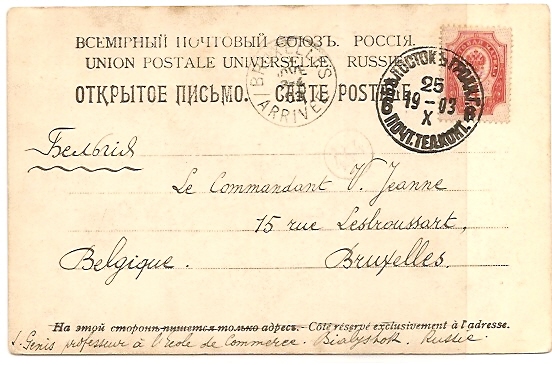 ВСЕМІРНЫЙ ПОЧТОВЫЙ СОЮЗЪ. РОССІЯ.
UNION POSTALE UNIVERSELLE. RUSSIE.
ОТКРЫТОЕ ПИСЬМО. CARTE POSTALE.
BRUXELLES
ARRIVEE
БѢЛОСТОКЪ
25
19-03
X
ПОЧТ. ТЕЛ. КОНТ.
Бельгія
Le Commandant V. Jeanne
15 rue Lesbroussart,
Belgique. Bruxelles.
На этой сторонѣ пишется только адресъ. - Côté réservé exclusivement à l'adresse.
Genis professeur à l'école de Commerce. Bialystok. Russie